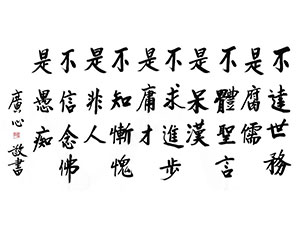 不達世務
是腐儒
不體聖言
是呆漢
不求進步
是庸才
不知慚愧
是非人
不信念佛
是愚痴
廣心敬書